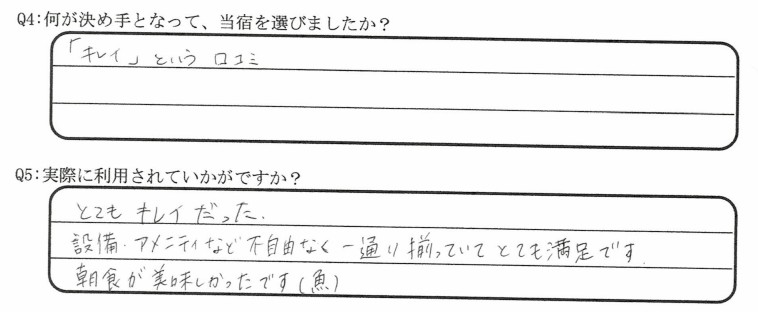 Q4:何が決め手となって、当宿を選びましたか?
「キレイ」という 口コミ
Q5:実際に利用されていかがですか?
とても キレイ だった.
設備・アメニティなど 不自由なく 一通り揃っていて とても満足です.
朝食が美味しかったです(魚)